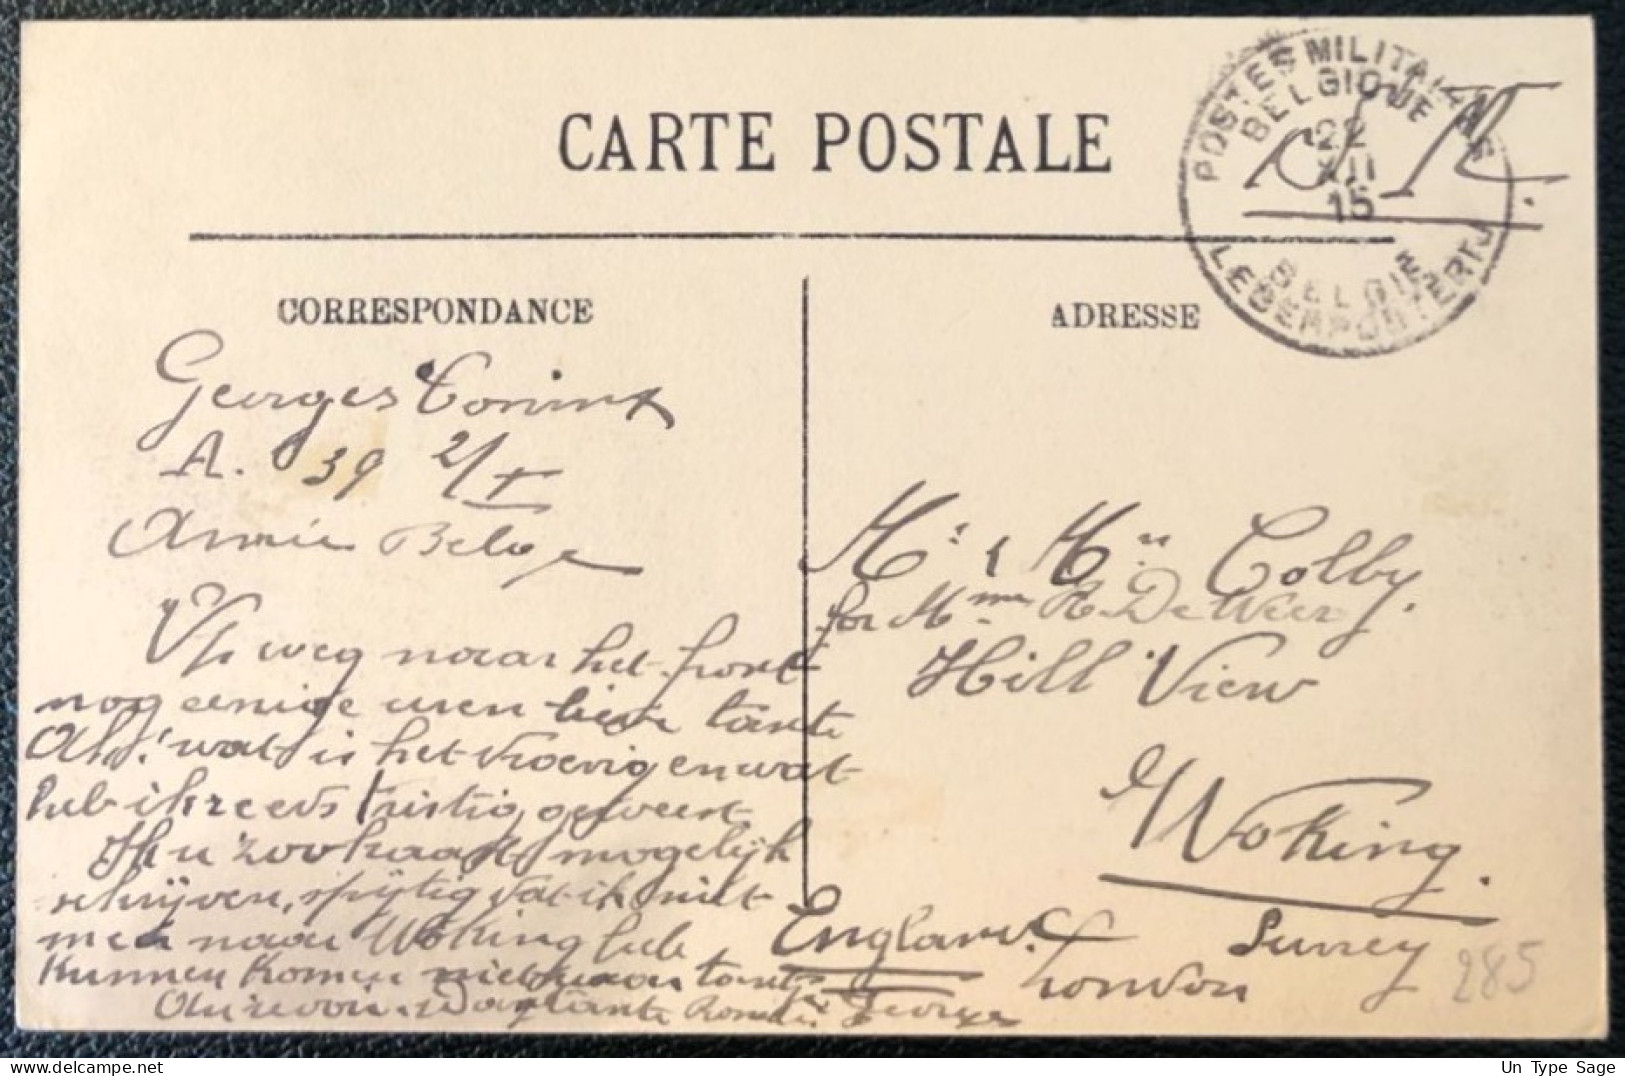 CARTE POSTALE
POSTES MILITAIRES
BELGIQUE
22
XII
15
BELGIE
LEGERPOSTERIJ
S.M.
CORRESPONDANCE
ADRESSE
Georges
A. 39 2/I
Armée Belge
Op weg naar het front
nog eenige uren lieve tante
Ah! wat is het droevig en wat
heb ik reeds tristig geweest
Ik u zoo haast mogelijk
schrijven, spijtig dat ik niet
meer naar Woking heb
kunnen komen niet waar tante
Au revoir. Georges
Mr & Mrs Colby.
for Mme R. De Weer
Hill View
Woking.
Surrey
England London
285
Un Type Sage